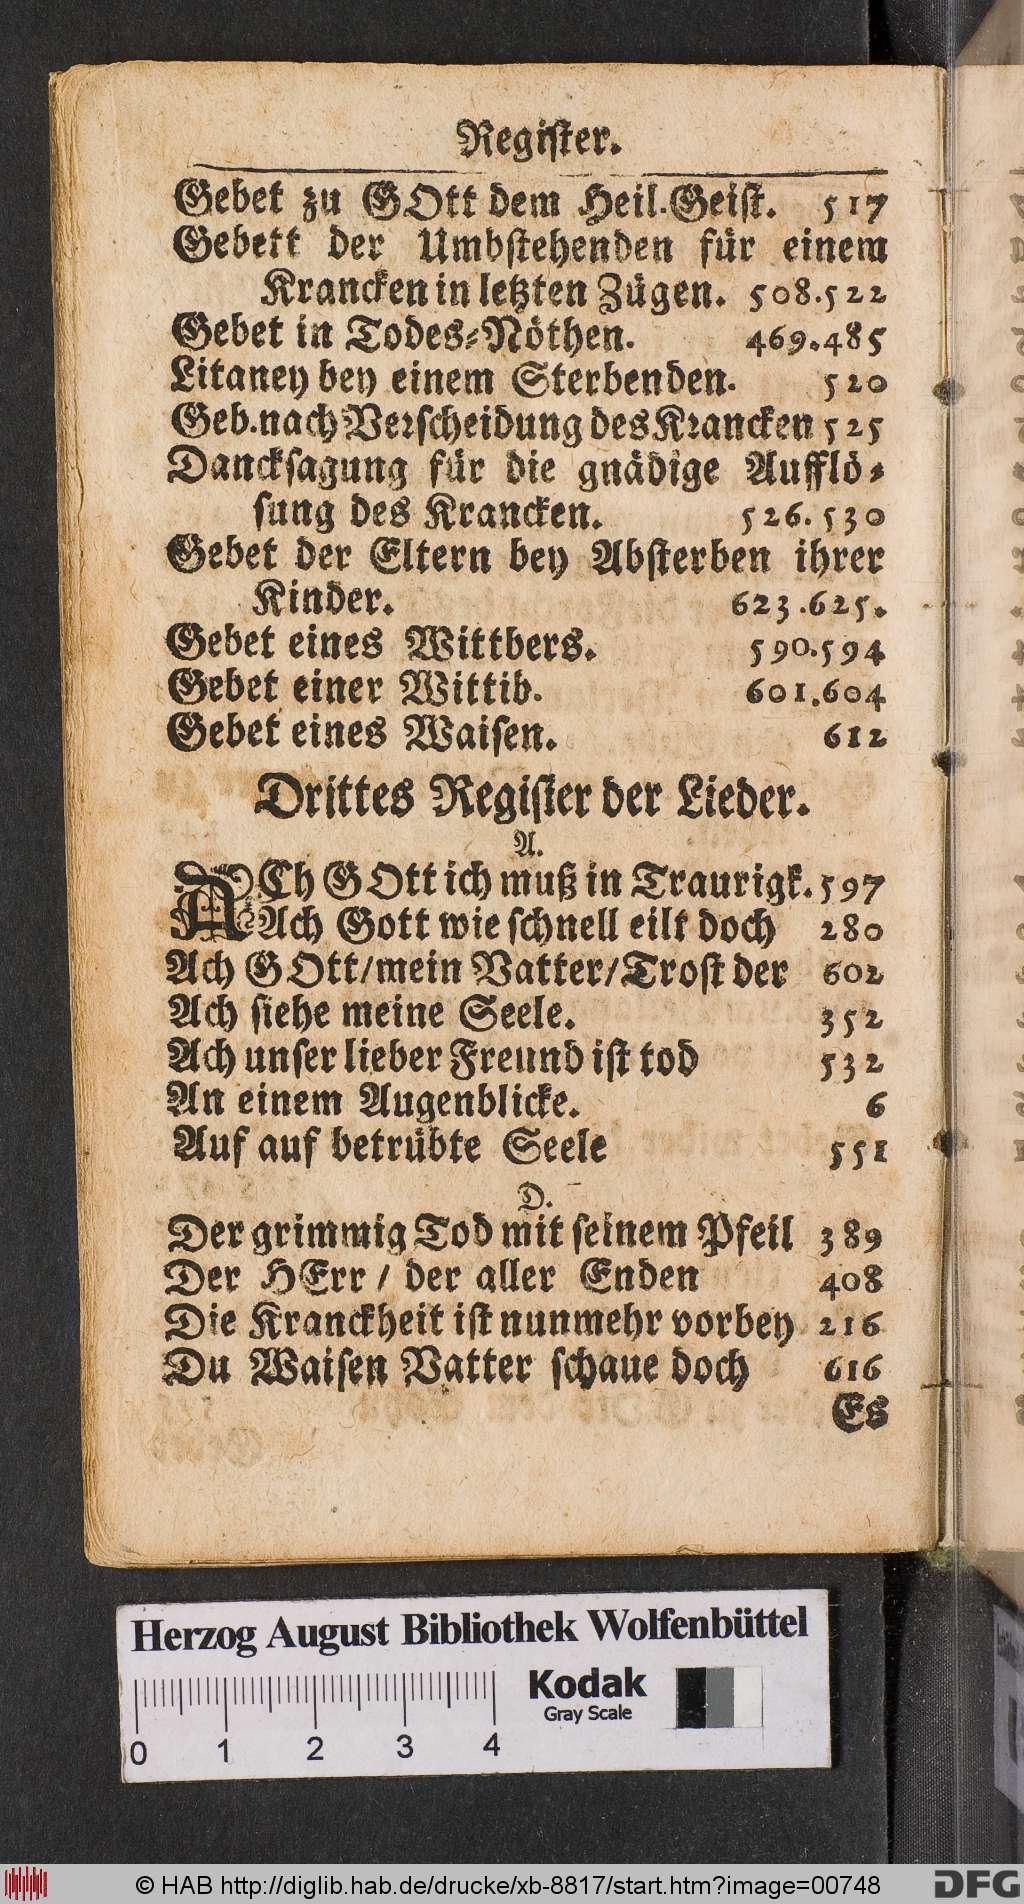 Regiſter.
Gebet zu GOtt dem Heil. Geiſt. 517
Gebett der Umbſtehenden für einem
Krancken in letzten Zügen. 508.522
Gebet in Todes⸗Nöthen. 469.485
Litaney bey einem Sterbenden. 520
Geb. nach Verſcheidung des Krancken 525
Danckſagung für die gnädige Aufflö⸗
ſung des Krancken. 526. 530
Gebet der Eltern bey Abſterben ihrer
Kinder. 623.625.
Gebet eines Wittbers. 590.594
Gebet einer Wittib. 601.604
Gebet eines Waiſen. 612
Drittes Regiſter der Lieder.
A.
ACh GOtt ich muß in Traurigk. 597
Ach Gott wie ſchnell eilt doch 280
Ach GOtt/mein Vatter/Troſt der 602
Ach ſiehe meine Seele. 352
Ach unſer lieber Freund iſt tod 532
An einem Augenblicke. 6
Auf auf betrübte Seele 551
D.
Der grimmig Tod mit ſeinem Pfeil 389
Der HErr / der aller Enden 408
Die Kranckheit iſt nunmehr vorbey 216
Du Waiſen Vatter ſchaue doch 616
Es
Herzog August Bibliothek Wolfenbüttel
Kodak
Gray Scale
0 1 2 3 4
© HAB http://diglib.hab.de/drucke/xb-8817/start.htm?image=00748
DFG